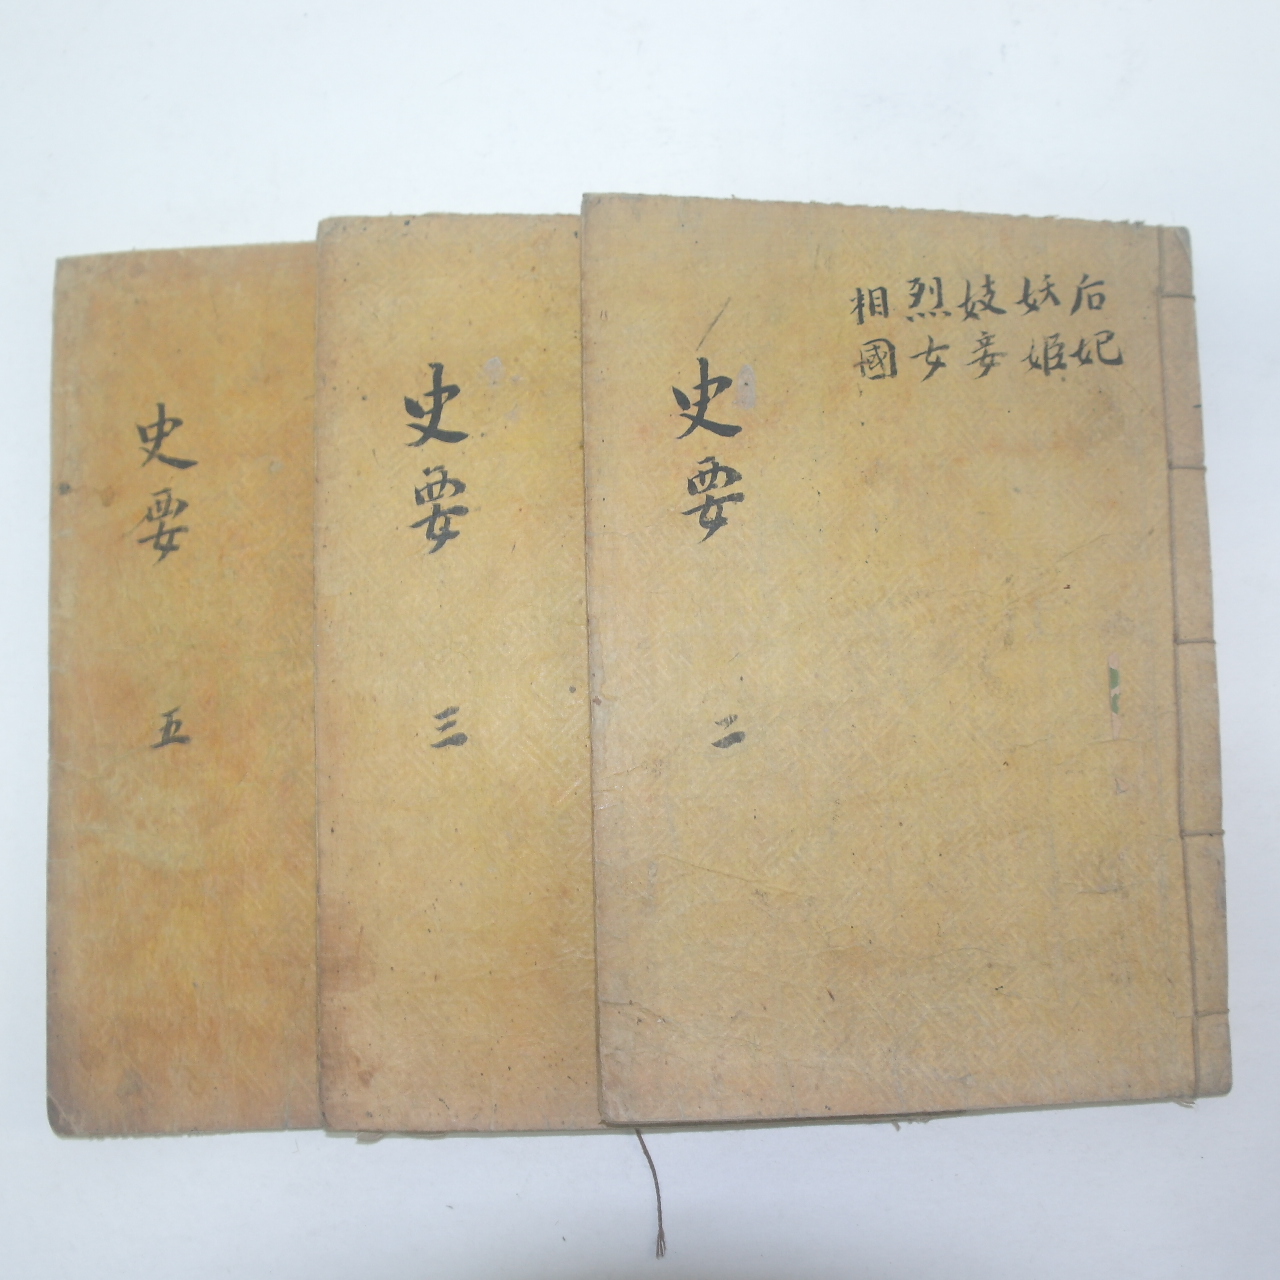 后妃
妖姬
妓妾
烈女
相國
史要 二
史要 三
史要 五